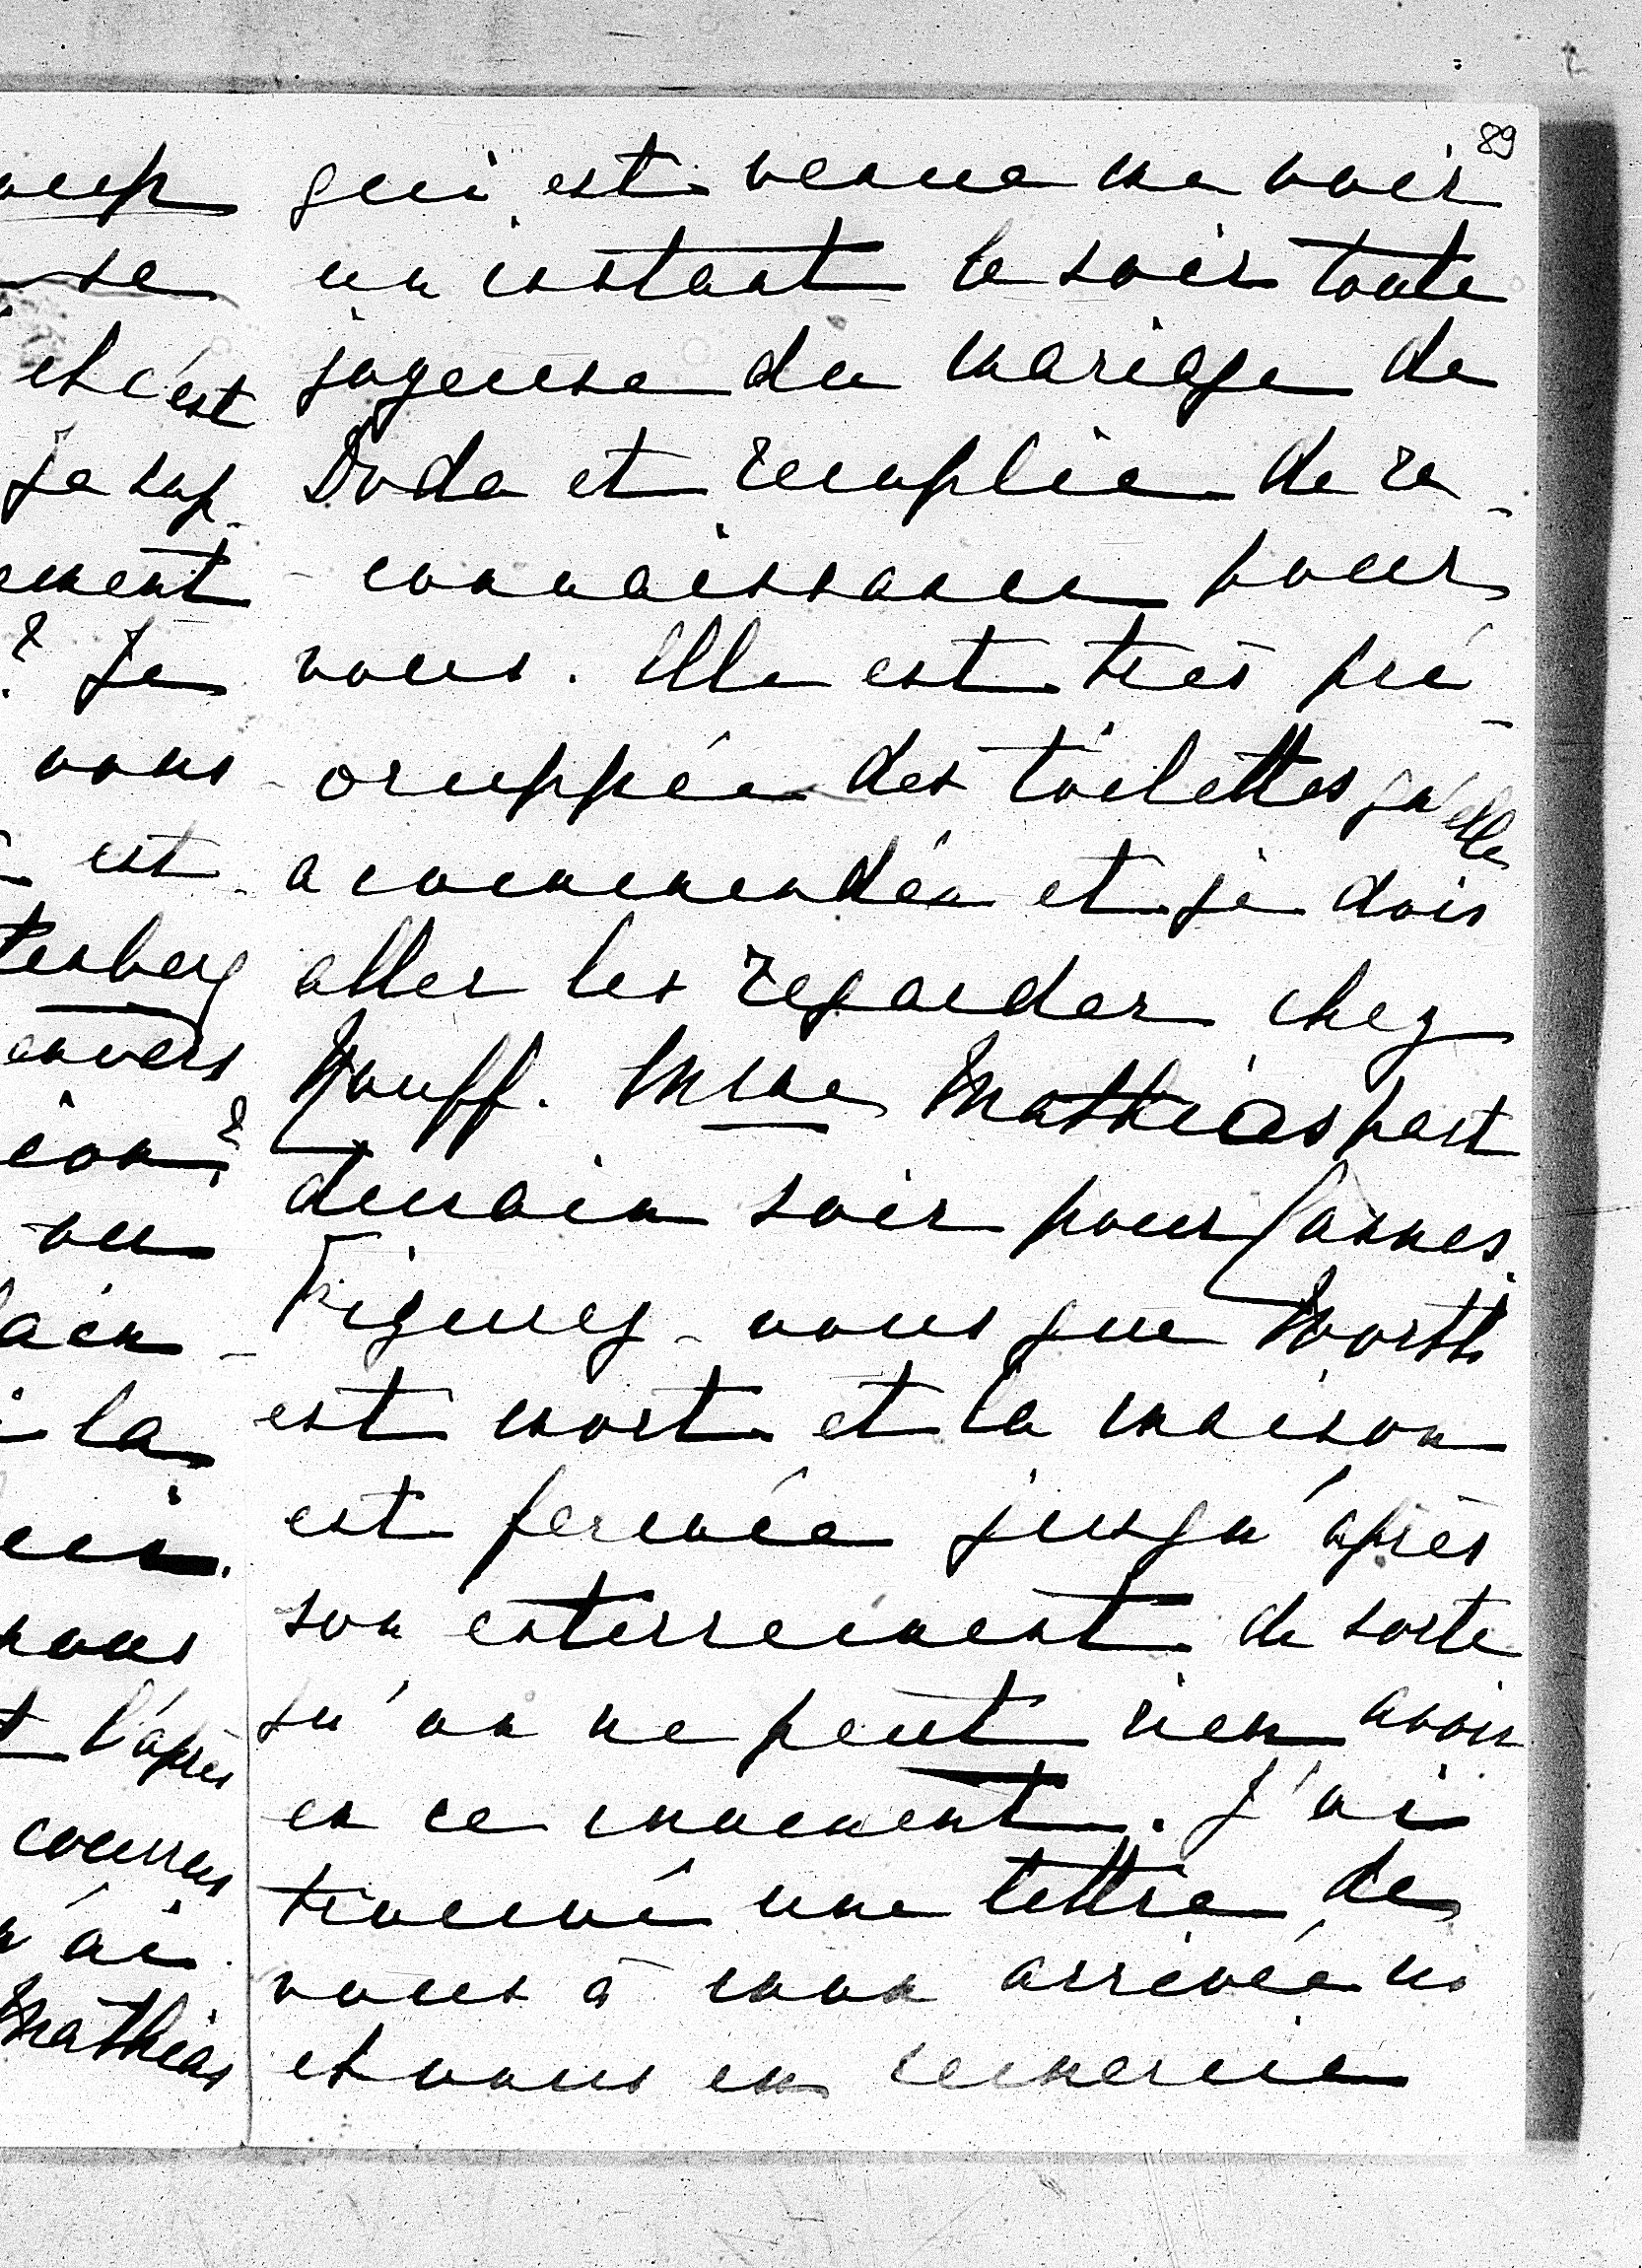 89
oup
se
et c'est
Je sup-
ement
? Je
vous
est
tenberg
envers
ion?
ou
ain-
la
nous
t l'après
courrus
n'ai
Mathias
qui est venue me voir
un instant le soir toute
joyeuse du mariage de
Doda et remplie de re-
-connaissance pour
vous. Elle est très pré-
-ocuppée des toilettes qu'elle
a commendée et je dois
aller les regarder chez
Rouff. Mme Mathias part
demain soir pour Cannes.
Figurez-vous que Worth
est mort et la maison
est fermée jusqu'après
son enterrement de sorte
qu'on ne peut rien avoir
en ce moment. J'ai
trouvé une lettre de
vous à mon arrivée ici
et vous en remercie